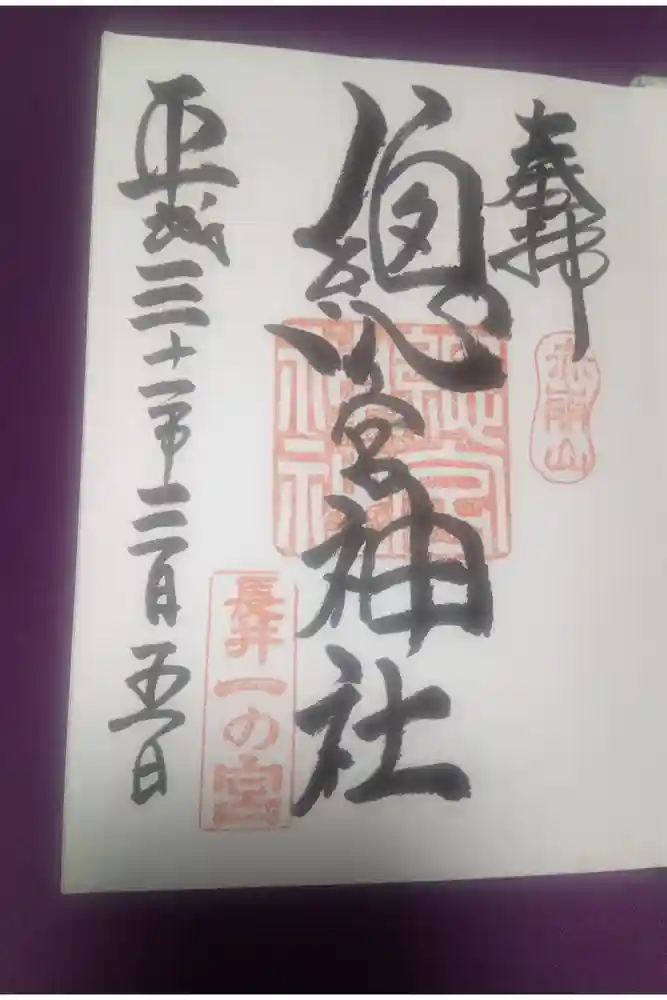 奉拝
赤崩山
總宮神社
總宮神社
長井一の宮
平成三十一年三月五日